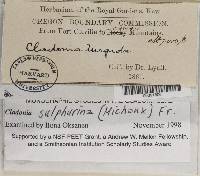 Herbarium of the Royal Gardens, Kew
OREGON BOUNDARY COMMISSION.
From Fort Colville to Rocky Mountains.
Cladonia
Coll. by Dr. Lyall.
1861.
FARLOW HERBARIUM
HARVARD
UNIVERSITY
Cladonia sulphurina (Michaux) Fr.
Examined by Ilona Oksanen November 1998
Supported by a NSF PEET Grant, a Andrew W. Mellon Fellowship,
and a Smithsonian Institution Scholarly Studies Award